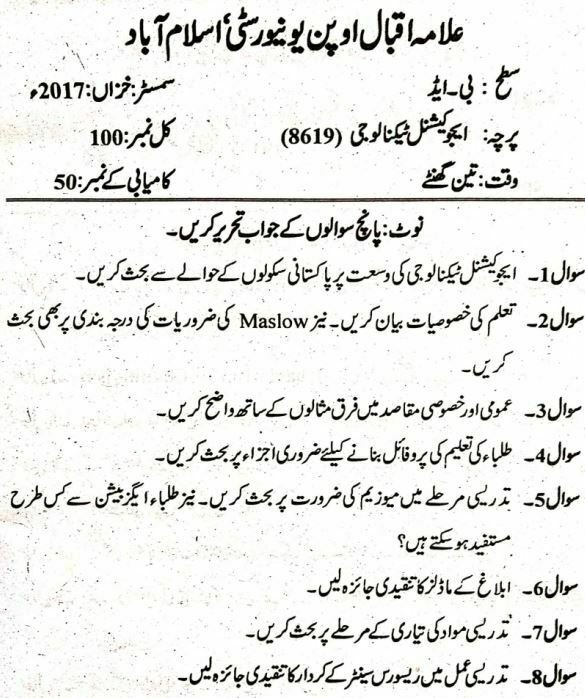 علامہ اقبال اوپن یونیورسٹی، اسلام آباد
سطح : بی۔ ایڈ سمسٹر: خزاں: 2017ء
پرچہ: ایجوکیشنل ٹیکنالوجی (8619) کل نمبر: 100
وقت: تین گھنٹے کامیابی کے نمبر: 50
نوٹ: پانچ سوالوں کے جواب تحریر کریں۔
سوال 1۔ ایجوکیشنل ٹیکنالوجی کی وسعت پر پاکستانی سکولوں کے حوالے سے بحث کریں۔
سوال 2۔ تعلم کی خصوصیات بیان کریں۔ نیز Maslow کی ضروریات کی درجہ بندی پر بھی بحث
کریں۔
سوال 3۔ عمومی اور خصوصی مقاصد میں فرق مثالوں کے ساتھ واضح کریں۔
سوال 4۔ طلباء کی تعلیم کی پروفائل بنانے کیلئے ضروری اجزاء پر بحث کریں۔
سوال 5۔ تدریسی مرحلے میں میوزیم کی ضرورت پر بحث کریں۔ نیز طلباء ایگزبیشن سے کس طرح
مستفید ہو سکتے ہیں؟
سوال 6۔ ابلاغ کے ماڈلز کا تنقیدی جائزہ لیں۔
سوال 7۔ تدریسی مواد کی تیاری کے مرحلے پر بحث کریں۔
سوال 8۔ تدریسی عمل میں ریسورس سینٹر کے کردار کا تنقیدی جائزہ لیں۔